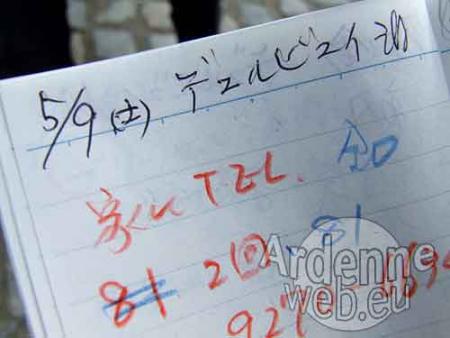 5/9(土) デュルビュイ泊
家に TEL.
81 210.81
Ardenne
web.eu